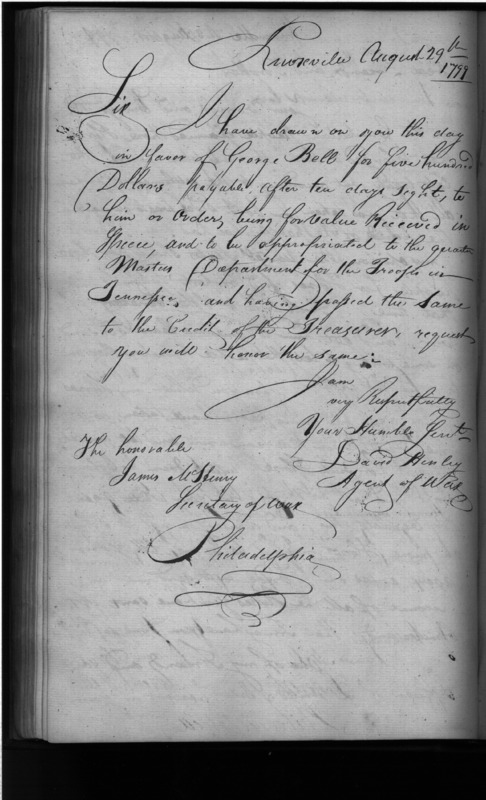 Knoxville August 29th
1799
Sir
I have drawn on you this day
in favor of George Bell for five hundred
Dollars payable after ten days sight, to
him or Order, being for value Received in
Specie, and to be appropriated to the quarter
Masters Department for the Troops in
Tennessee, and having passed the same
to the Credit of the Treasurer, request
you will honor the same.
I am
very Respectfully
Your Humble Servt
David Henley
Agent of War
The honorable
James McHenry
Secretary of War
Philadelphia